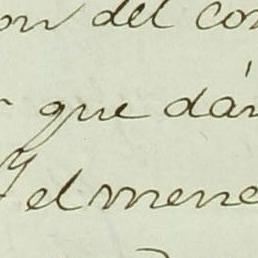 on del con
que dán
el mene